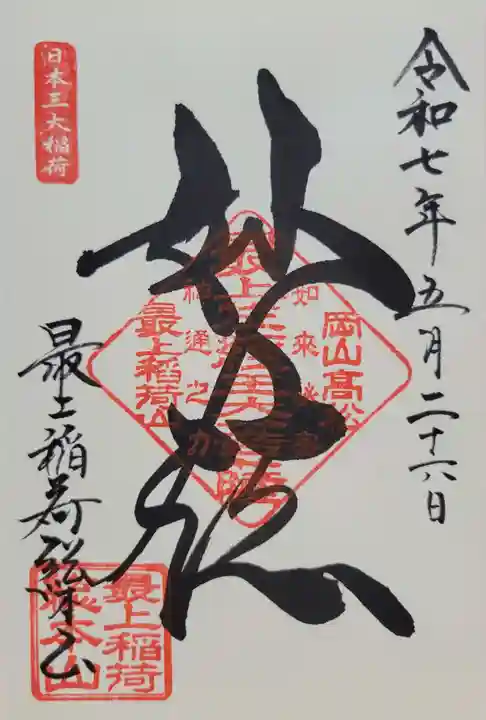 令和七年五月二十六日
岡山高松
如来
最上
神通之力
最上稲荷山
妙法
日本三大稲荷
最上稲荷総本山
最上稲荷
総本山